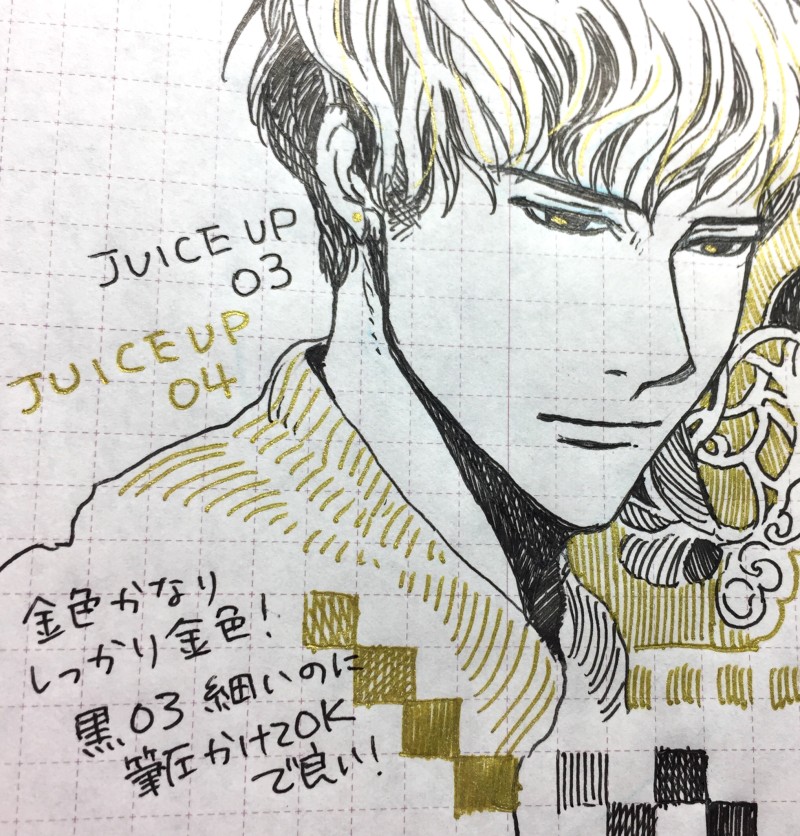 JUICE UP
03
JUICE UP
04
金色かなり
しっかり金色!
黒03 細いのに
筆圧かけてOK
で良い!